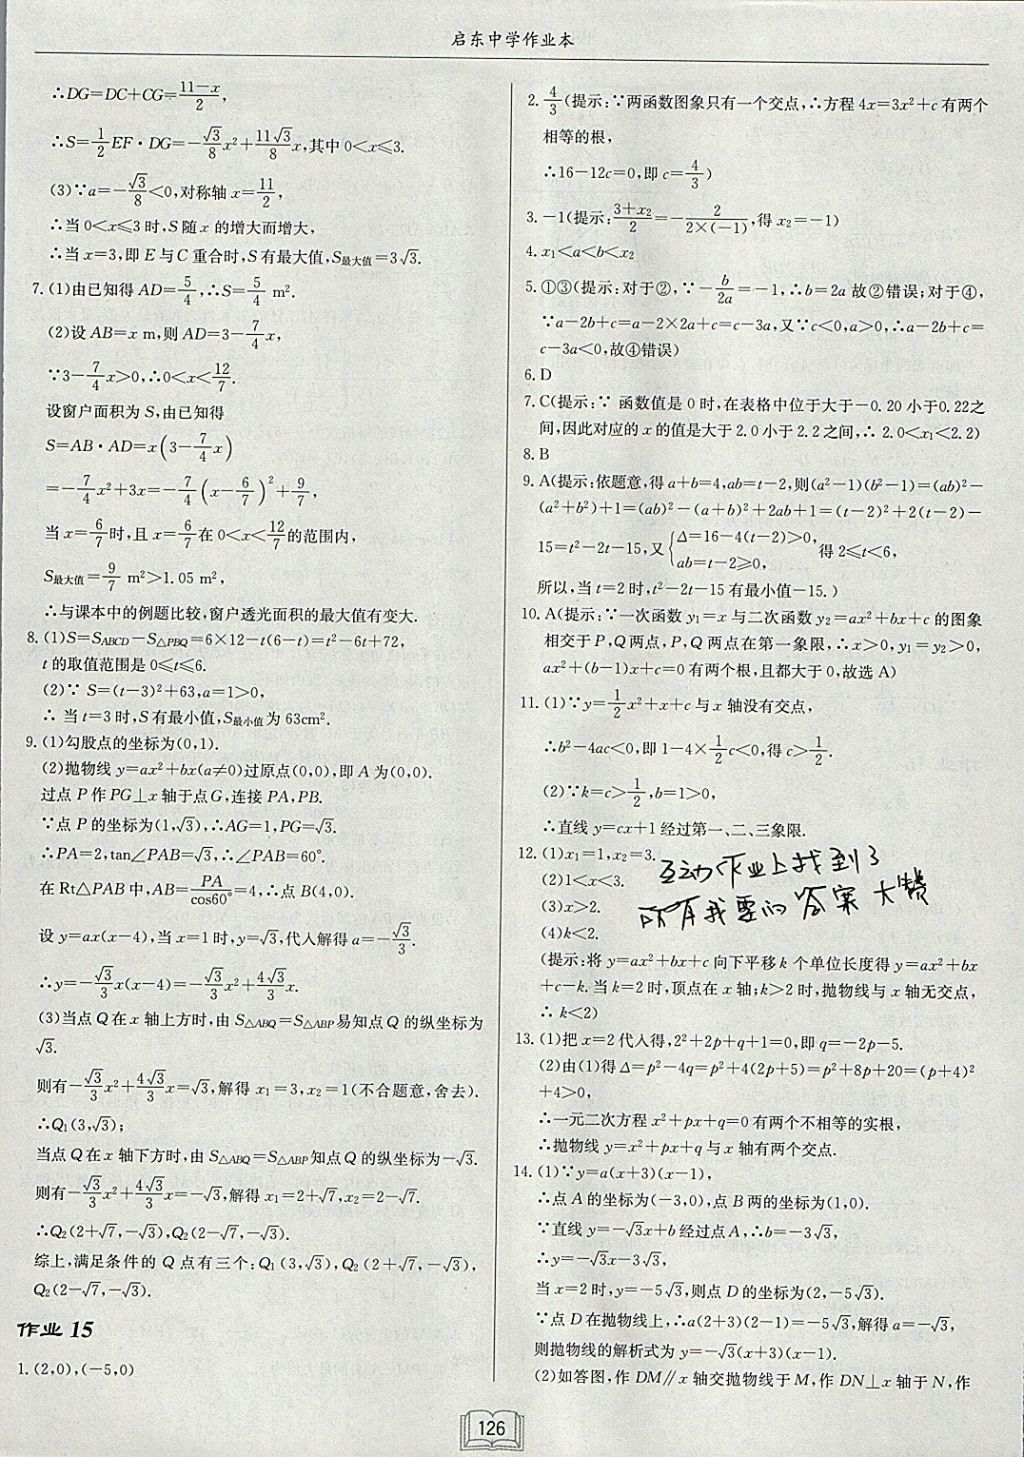 启东中学作业本
∴DG=DC+CG=\frac{11-x}{2},
∴S=\frac{1}{2}EF·DG=-\frac{√3}{8}x²+\frac{11√3}{8}x,其中0<x≤3.
(3)∵a=-\frac{√3}{8}<0,对称轴x=\frac{11}{2},
∴当0<x≤3时,S随x的增大而增大,
∴当x=3,即E与C重合时,S有最大值,S最大值=3√3.
7.(1)由已知得AD=\frac{5}{4},∴S=\frac{5}{4} m².
(2)设AB=x m,则AD=3-\frac{7}{4}x,
∵3-\frac{7}{4}x>0,∴0<x<\frac{12}{7}.
设窗户面积为S,由已知得
S=AB·AD=x(3-\frac{7}{4}x)
=-\frac{7}{4}x²+3x=-\frac{7}{4}(x-\frac{6}{7})²+\frac{9}{7},
当x=\frac{6}{7}时,且x=\frac{6}{7}在0<x<\frac{12}{7}的范围内,
S最大值=\frac{9}{7} m²>1.05 m²,
∴与课本中的例题比较,窗户透光面积的最大值有变大.
8.(1)S=S_{ABCD}-S_{△PBQ}=6×12-t(6-t)=t²-6t+72,
t的取值范围是0≤t≤6.
(2)∵ S=(t-3)²+63,a=1>0,
∴ 当t=3时,S有最小值,S最小值为63cm².
9.(1)勾股点的坐标为(0,1).
(2)抛物线y=ax²+bx(a≠0)过原点(0,0),即A为(0,0).
过点P作PG⊥x轴于点G,连接PA,PB.
∵点P的坐标为(1,√3),∴AG=1,PG=√3.
∴PA=2,tan∠PAB=√3,∴∠PAB=60°.
在Rt△PAB中,AB=\frac{PA}{cos60°}=4,∴点B(4,0).
设y=ax(x-4),当x=1时,y=√3,代入解得a=-\frac{√3}{3}.
∴y=-\frac{√3}{3}x(x-4)=-\frac{√3}{3}x²+\frac{4√3}{3}x.
(3)当点Q在x轴上方时,由S_{△ABQ}=S_{△ABP}易知点Q的纵坐标为
√3.
则有-\frac{√3}{3}x²+\frac{4√3}{3}x=√3,解得x₁=3,x₂=1(不合题意,舍去).
∴Q₁(3,√3);
当点Q在x轴下方时,由S_{△ABQ}=S_{△ABP}知点Q的纵坐标为-√3.
则有-\frac{√3}{3}x²+\frac{4√3}{3}x=-√3,解得x₁=2+√7,x₂=2-√7.
∴Q₂(2+√7,-√3),Q₂(2-√7,-√3).
综上,满足条件的Q点有三个:Q₁(3,√3),Q₂(2+√7,-√3),
Q₂(2-√7,-√3).
作业15
1.(2,0),(-5,0)
2.\frac{4}{3}(提示:∵两函数图象只有一个交点,∴方程4x=3x²+c有两个
相等的根,
∴16-12c=0,即c=\frac{4}{3})
3.-1(提示:\frac{3+x₂}{2}=-\frac{2}{2×(-1)},得x₂=-1)
4.x₁<a<b<x₂
5.①③(提示:对于②,∵-\frac{b}{2a}=-1,∴b=2a故②错误;对于④,
∵a-2b+c=a-2×2a+c=c-3a,又∵c<0,a>0,∴a-2b+c=
c-3a<0,故④错误)
6.D
7.C(提示:∵ 函数值是0时,在表格中位于大于-0.20小于0.22之
间,因此对应的x的值是大于2.0小于2.2之间,∴ 2.0<x₁<2.2)
8.B
9.A(提示:依题意,得a+b=4,ab=t-2,则(a²-1)(b²-1)=(ab)²-
(a²+b²)+1=(ab)²-(a+b)²+2ab+1=(t-2)²+2(t-2)-
15=t²-2t-15,又{Δ=16-4(t-2)>0, ab=t-2≥0, 得2≤t<6,
所以,当t=2时,t²-2t-15有最小值-15.)
10.A(提示:∵一次函数y₁=x与二次函数y₂=ax²+bx+c的图象
相交于P,Q两点,P,Q两点在第一象限,∴x>0,y₁=y₂>0,
ax²+(b-1)x+c=0有两个根,且都大于0,故选A)
11.(1)∵y=\frac{1}{2}x²+x+c与x轴没有交点,
∴b²-4ac<0,即1-4×\frac{1}{2}c<0,得c>\frac{1}{2}.
(2)∵k=c>\frac{1}{2},b=1>0,
∴直线y=cx+1经过第一、二、三象限.
12.(1)x₁=1,x₂=3.
(2)1<x<3.
互动作业上找到了
(3)x>2.
所有我要的答案 大赞
(4)k<2.
(提示:将y=ax²+bx+c向下平移k个单位长度得y=ax²+bx
+c-k.当k=2时,顶点在x轴;k>2时,抛物线与x轴无交点,
∴ k<2)
13.(1)把x=2代人得,2²+2p+q+1=0,即q=-2p-5.
(2)由(1)得Δ=p²-4q=p²+4(2p+5)=p²+8p+20=(p+4)²
+4>0,
∴一元二次方程x²+px+q=0有两个不相等的实根,
∴抛物线y=x²+px+q与x轴有两个交点.
14.(1)∵y=a(x+3)(x-1),
∴点A的坐标为(-3,0),点B两的坐标为(1,0).
∵直线y=-√3x+b经过点A,∴b=-3√3,
∴y=-√3x-3√3,
当x=2时,y=-5√3,则点D的坐标为(2,-5√3).
∵点D在抛物线上,∴a(2+3)(2-1)=-5√3,解得a=-√3,
则抛物线的解析式为y=-√3(x+3)(x-1).
(2)如答图,作DM∥x轴交抛物线于M,作DN⊥x轴于N,作
126